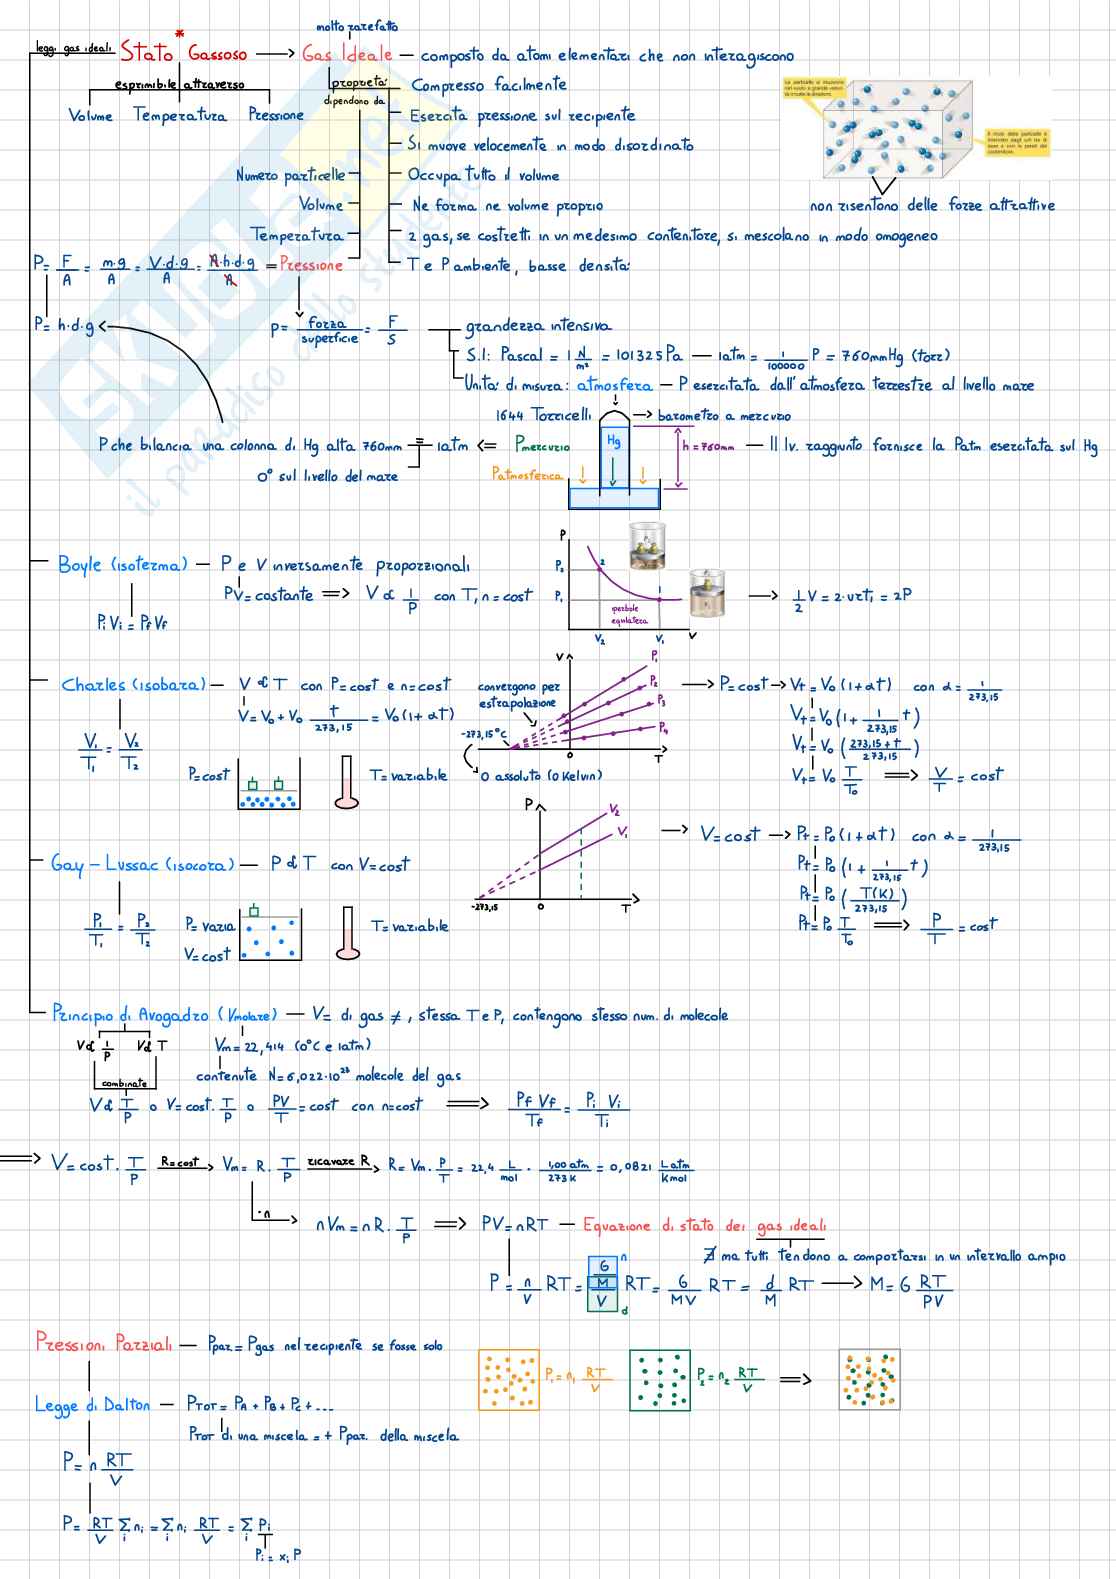 molto rarefatto
leggi gas ideali Stato * Gassoso → Gas Ideale — composto da atomi elementari che non interagiscono
esprimibile attraverso
Volume Temperatura Pressione
proprietà: Compresso facilmente
dipendono da
Esercita pressione sul recipiente
Si muove velocemente in modo disordinato
Numero particelle
Occupa tutto il volume
Volume
Ne forma ne volume proprio
Temperatura
2 gas, se costretti in un medesimo contenitore, si mescolano in modo omogeneo
T e P ambiente, basse densità:
non risentono delle forze attrattive
P = F/A = m·g/A = V·d·g/A = A·h·d·g/A = Pressione
P = h·d·g
P = forza/superficie = F/S
grandezza intensiva
S.I: Pascal = 1 N/m² = 101325 Pa — 1atm = 1/100000 P = 760mmHg (torr)
Unità di misura: atmosfera — P esercitata dall'atmosfera terrestre al livello mare
1644 Torricelli → barometro a mercurio
P che bilancia una colonna di Hg alta 760mm = 1atm ⇐ Pmercurio Hg h = 760mm — Il lv. raggiunto fornisce la Patm esercitata sul Hg
0° sul livello del mare
Patmosferica
Boyle (isoterma) — P e V inversamente proporzionali
PV = costante ⟹ V ∝ 1/P con T, n = cost
Pi Vi = Pf Vf
P P₂ P₁ 2 1 V₂ V₁ V
parbole equilatera
→ 1/2 V = 2·urti = 2P
Charles (isobara) — V ∝ T con P=cost e n=cost
V = V₀ + V₀ t/273,15 = V₀(1+αt)
V₁/T₁ = V₂/T₂
P=cost T=variabile
V P₁ P₂ P₃ P₄ 0 T
convergono per estrapolazione
-273,15°C
0 assoluto (0 Kelvin)
→ P=cost → Vt = V₀(1+αt) con α = 1/273,15
Vt = V₀(1 + 1/273,15 t)
Vt = V₀(273,15+t/273,15)
Vt = V₀ T/T₀ ⟹ V/T = cost
Gay-Lussac (isocora) — P ∝ T con V=cost
P₁/T₁ = P₂/T₂
P=varia
V=cost
T=variabile
P V₂ V₁ -273,15 0 T
→ V=cost → Pt = P₀(1+αt) con α = 1/273,15
Pt = P₀(1 + 1/273,15 t)
Pt = P₀(T(K)/273,15)
Pt = P₀ T/T₀ ⟹ P/T = cost
Principio di Avogadro (Vmolare) — V= di gas ≠, stessa T e P, contengono stesso num. di molecole
V∝ 1/P V∝ T
Vm = 22,414 (0°C e 1atm)
contenute N=6,022·10²³ molecole del gas
combinate
V∝ T/P o V=cost· T/P o PV/T = cost con n=cost ⟹ Pf Vf/Tf = Pi Vi/Ti
⟹ V=cost· T/P R=cost → Vm = R· T/P ricavare R → R = Vm· P/T = 22,4 L/mol · 1,00 atm/273 K = 0,0821 L atm/K mol
·n → nVm = nR· T/P ⟹ PV=nRT — Equazione di stato dei gas ideali
∄ ma tutti tendono a comportarsi in un intervallo ampio
P = n/V RT = G/M/V n d RT = G/MV RT = d/M RT → M = G RT/PV
Pressioni Parziali — Ppar. = Pgas nel recipiente se fosse solo
P₁ = n₁ RT/V
P₂ = n₂ RT/V ⟹
Legge di Dalton — PTOT = PA + PB + PC + ....
PTOT di una miscela = + Ppar. della miscela
P = n RT/V
P = RT/V Σi ni = Σi ni RT/V = Σi Pi
Pi = xi P
SKUOLA.net
il paradiso dello studente